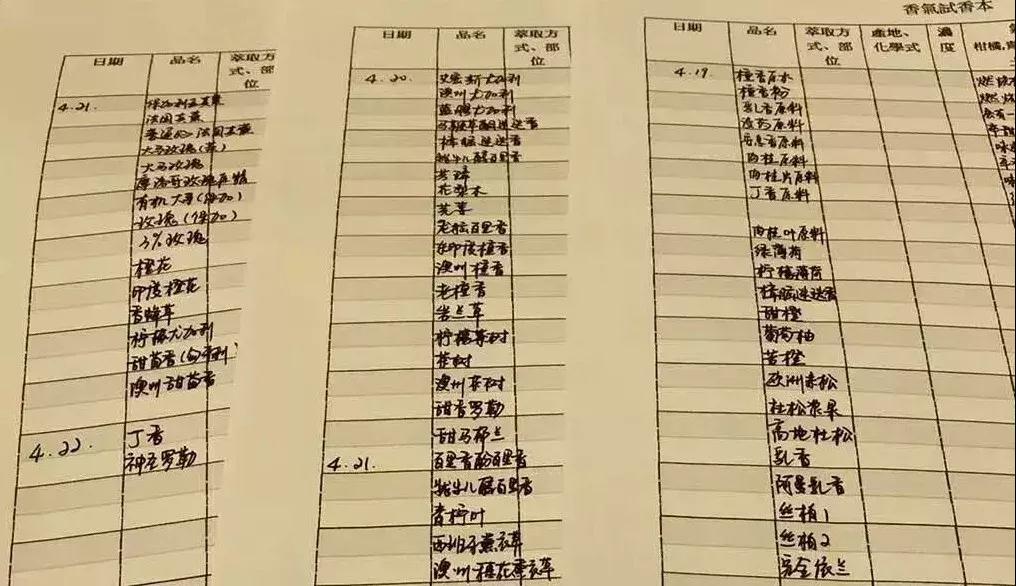 日期 品名 萃取方式、部位
4.21. 保加利亚
法国
法国
大马玫瑰(花)
大马玫瑰
摩洛哥玫瑰
有机大马(保加)
玫瑰(保加)
3%玫瑰
橙花
印度橙花
香蜂草
柠檬尤加利
甜茴香(匈牙利)
澳洲甜茴香
4.22. 丁香
神圣罗勒
日期 品名 萃取方式、部位
4.20. 史密斯尤加利
澳洲尤加利
蓝胶尤加利
马鞭草酮迷迭香
樟脑迷迭香
牻牛儿醇百里香
芳樟
花梨木
芫荽
百里香
东印度檀香
澳洲檀香
老檀香
岩兰草
柠檬茶树
茶树
澳洲茶树
甜香罗勒
甜马郁兰
4.21. 百里香酚百里香
牻牛儿醇百里香
青柠叶
西班牙薰衣草
澳洲棉花薰衣草
香氣試香本
日期 品名 萃取方式、部位 產地、化學式 濃度
柑橘,
4.19. 檀香百木
檀香粉
乳香原料
没药原料
安息香原料
肉桂原料
肉桂片原料
丁香原料
肉桂叶原料
绿薄荷
柠檬薄荷
樟脑迷迭香
甜橙
葡萄柚
苦橙
欧洲赤松
杜松浆果
高地杜松
乳香
阿曼乳香
丝柏1
丝柏2
完全依兰